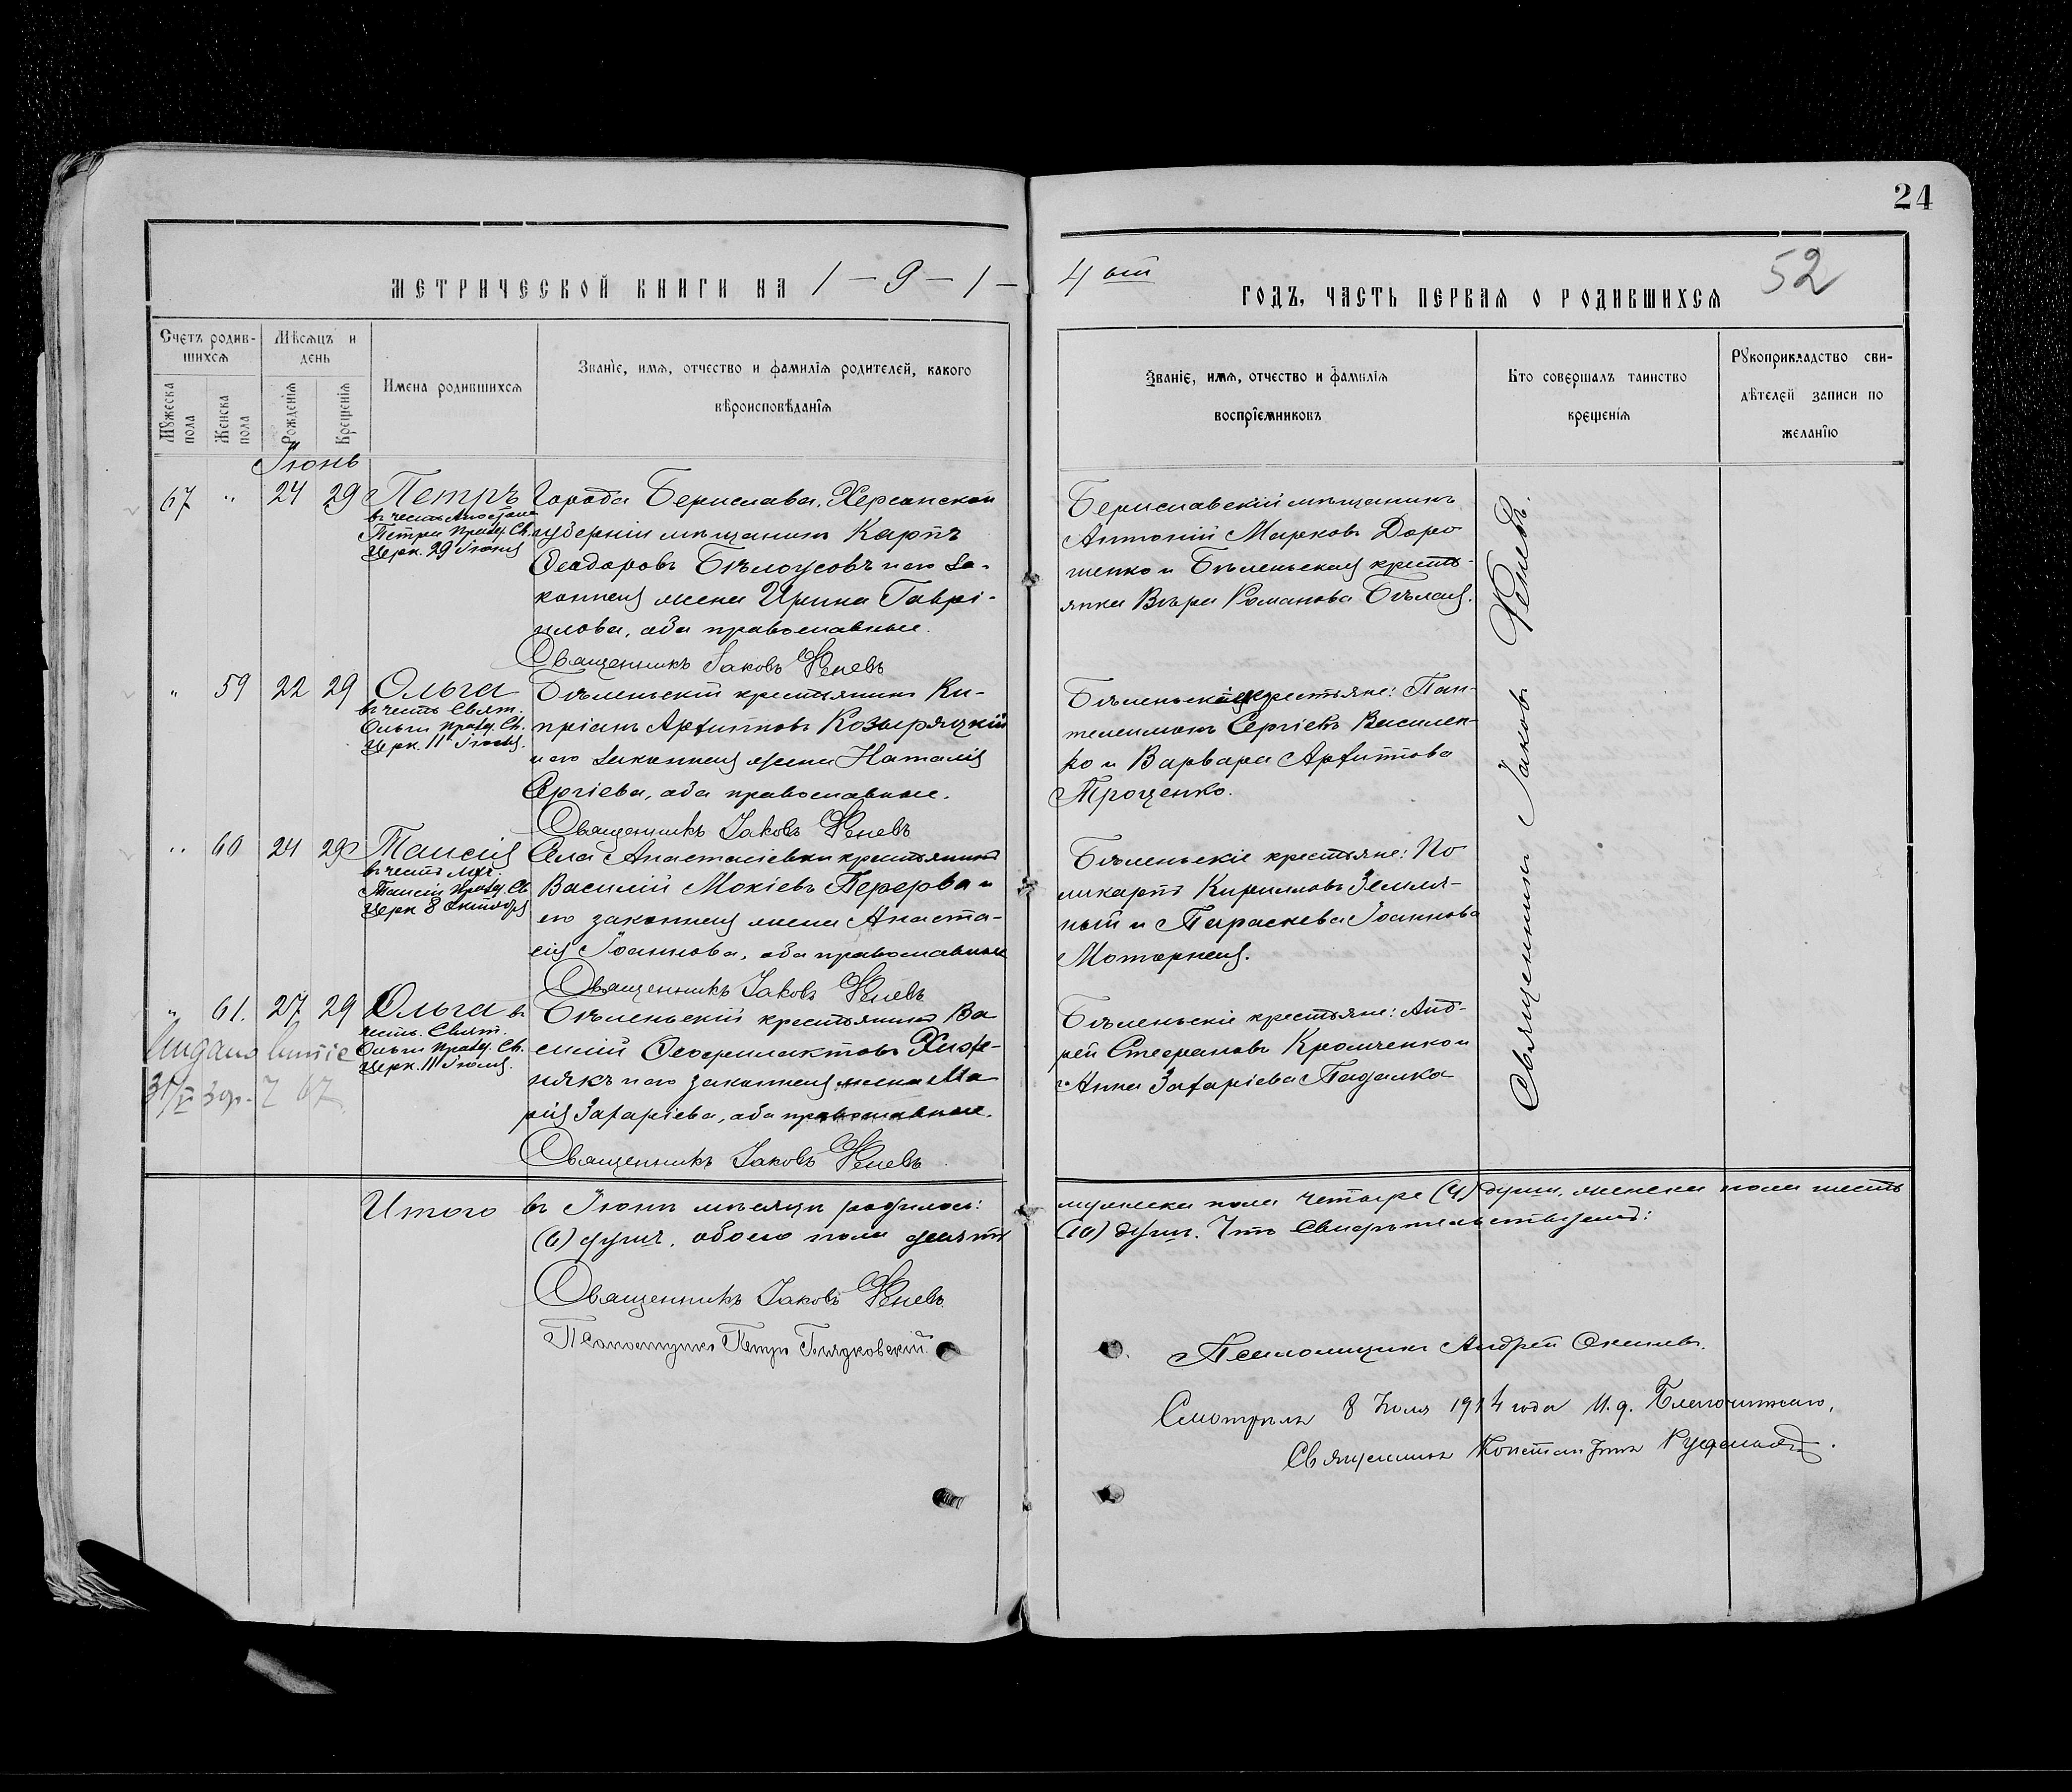 24
52
МЕТРИЧЕСКОЙ КНИГИ НА 1-9-1-
4 ый ГОДЪ, ЧАСТЬ ПЕРВАЯ О РОДИВШИХСЯ
Счетъ родив-
шихся
Мѣсяцъ и
день
Мужеска пола
Женска пола
Рожденія
Крещенія
Имена родившихся
Званіе, имя, отчество и фамилія родителей, какого
вѣроисповѣданія
Званіе, имя, отчество и фамилія
воспріемниковъ
Кто совершалъ таинство
крещенія
Рукоприкладство сви-
дѣтелей записи по
желанію
Іюнь
67 " 24 29 Петръ
въ честь Апостола
Петра празд. Св.
Церк. 29 Іюня
Города Берислава, Херсонской
губерніи мѣщанинъ Карпъ
Ѳеодоровъ Бѣлоусовъ и его за-
конная жена Ирина Гаврі-
илова, оба православные.
Священникъ Іаковъ
Бериславскій мѣщанинъ
Антоній Марковъ Доро
шенко и Бѣленьская кресть-
янка Вѣра Романова Бѣлая.
" 59 22 29 Ольга
въ честь Свят.
Ольги празд. Св.
Церк. 11 Іюля.
Бѣленьскій крестьянинъ Ки-
пріанъ Архиповъ Козыряцкій
и его законная жена Наталія
Сергіева, оба православные.
Священникъ Іаковъ
Бѣленьскіе крестьяне: Пан-
телеимонъ Сергіевъ Василен-
ко и Варвара Архипова
Троценко.
" 60 24 29 Таисія
въ честь
Таисіи празд. Св.
Церк 8 Октября
Села Анастасіевки крестьянинъ
Василій Мокіевъ Перерва и
его законная жена Анаста-
сія Іоаннова, оба православные
Священникъ Іаковъ
Бѣленьскіе крестьяне: По
ликарпъ Кирилловъ Земля-
ный и Параскева Іоаннова
Моторная.
" 61. 27 29 Ольга въ
честь Свят.
Ольги празд. Св.
Церк. 11 Іюля.
Бѣленьскій крестьянинъ Ва
силій Ѳеофилактовъ
и его законная жена Ма
рія Захаріева, оба православные.
Священникъ Іаковъ
Бѣленьскіе крестьяне: Анд-
рей Стефановъ Кромченко и
Анна Захаріева Падалка
Священникъ Іаковъ
Итого въ Іюнѣ мѣсяцѣ родилось: мужеска пола четыре (4) души, женска пола шесть
(6) душъ, обоего пола десять (10) душъ. Что свидѣтельствуемъ:
Священникъ Іаковъ
Псаломщикъ Петръ
Псаломщикъ Андрей
Смотрѣлъ 8 Іюля 1914 года И. д. Благочиннаго,
Священникъ Константинъ